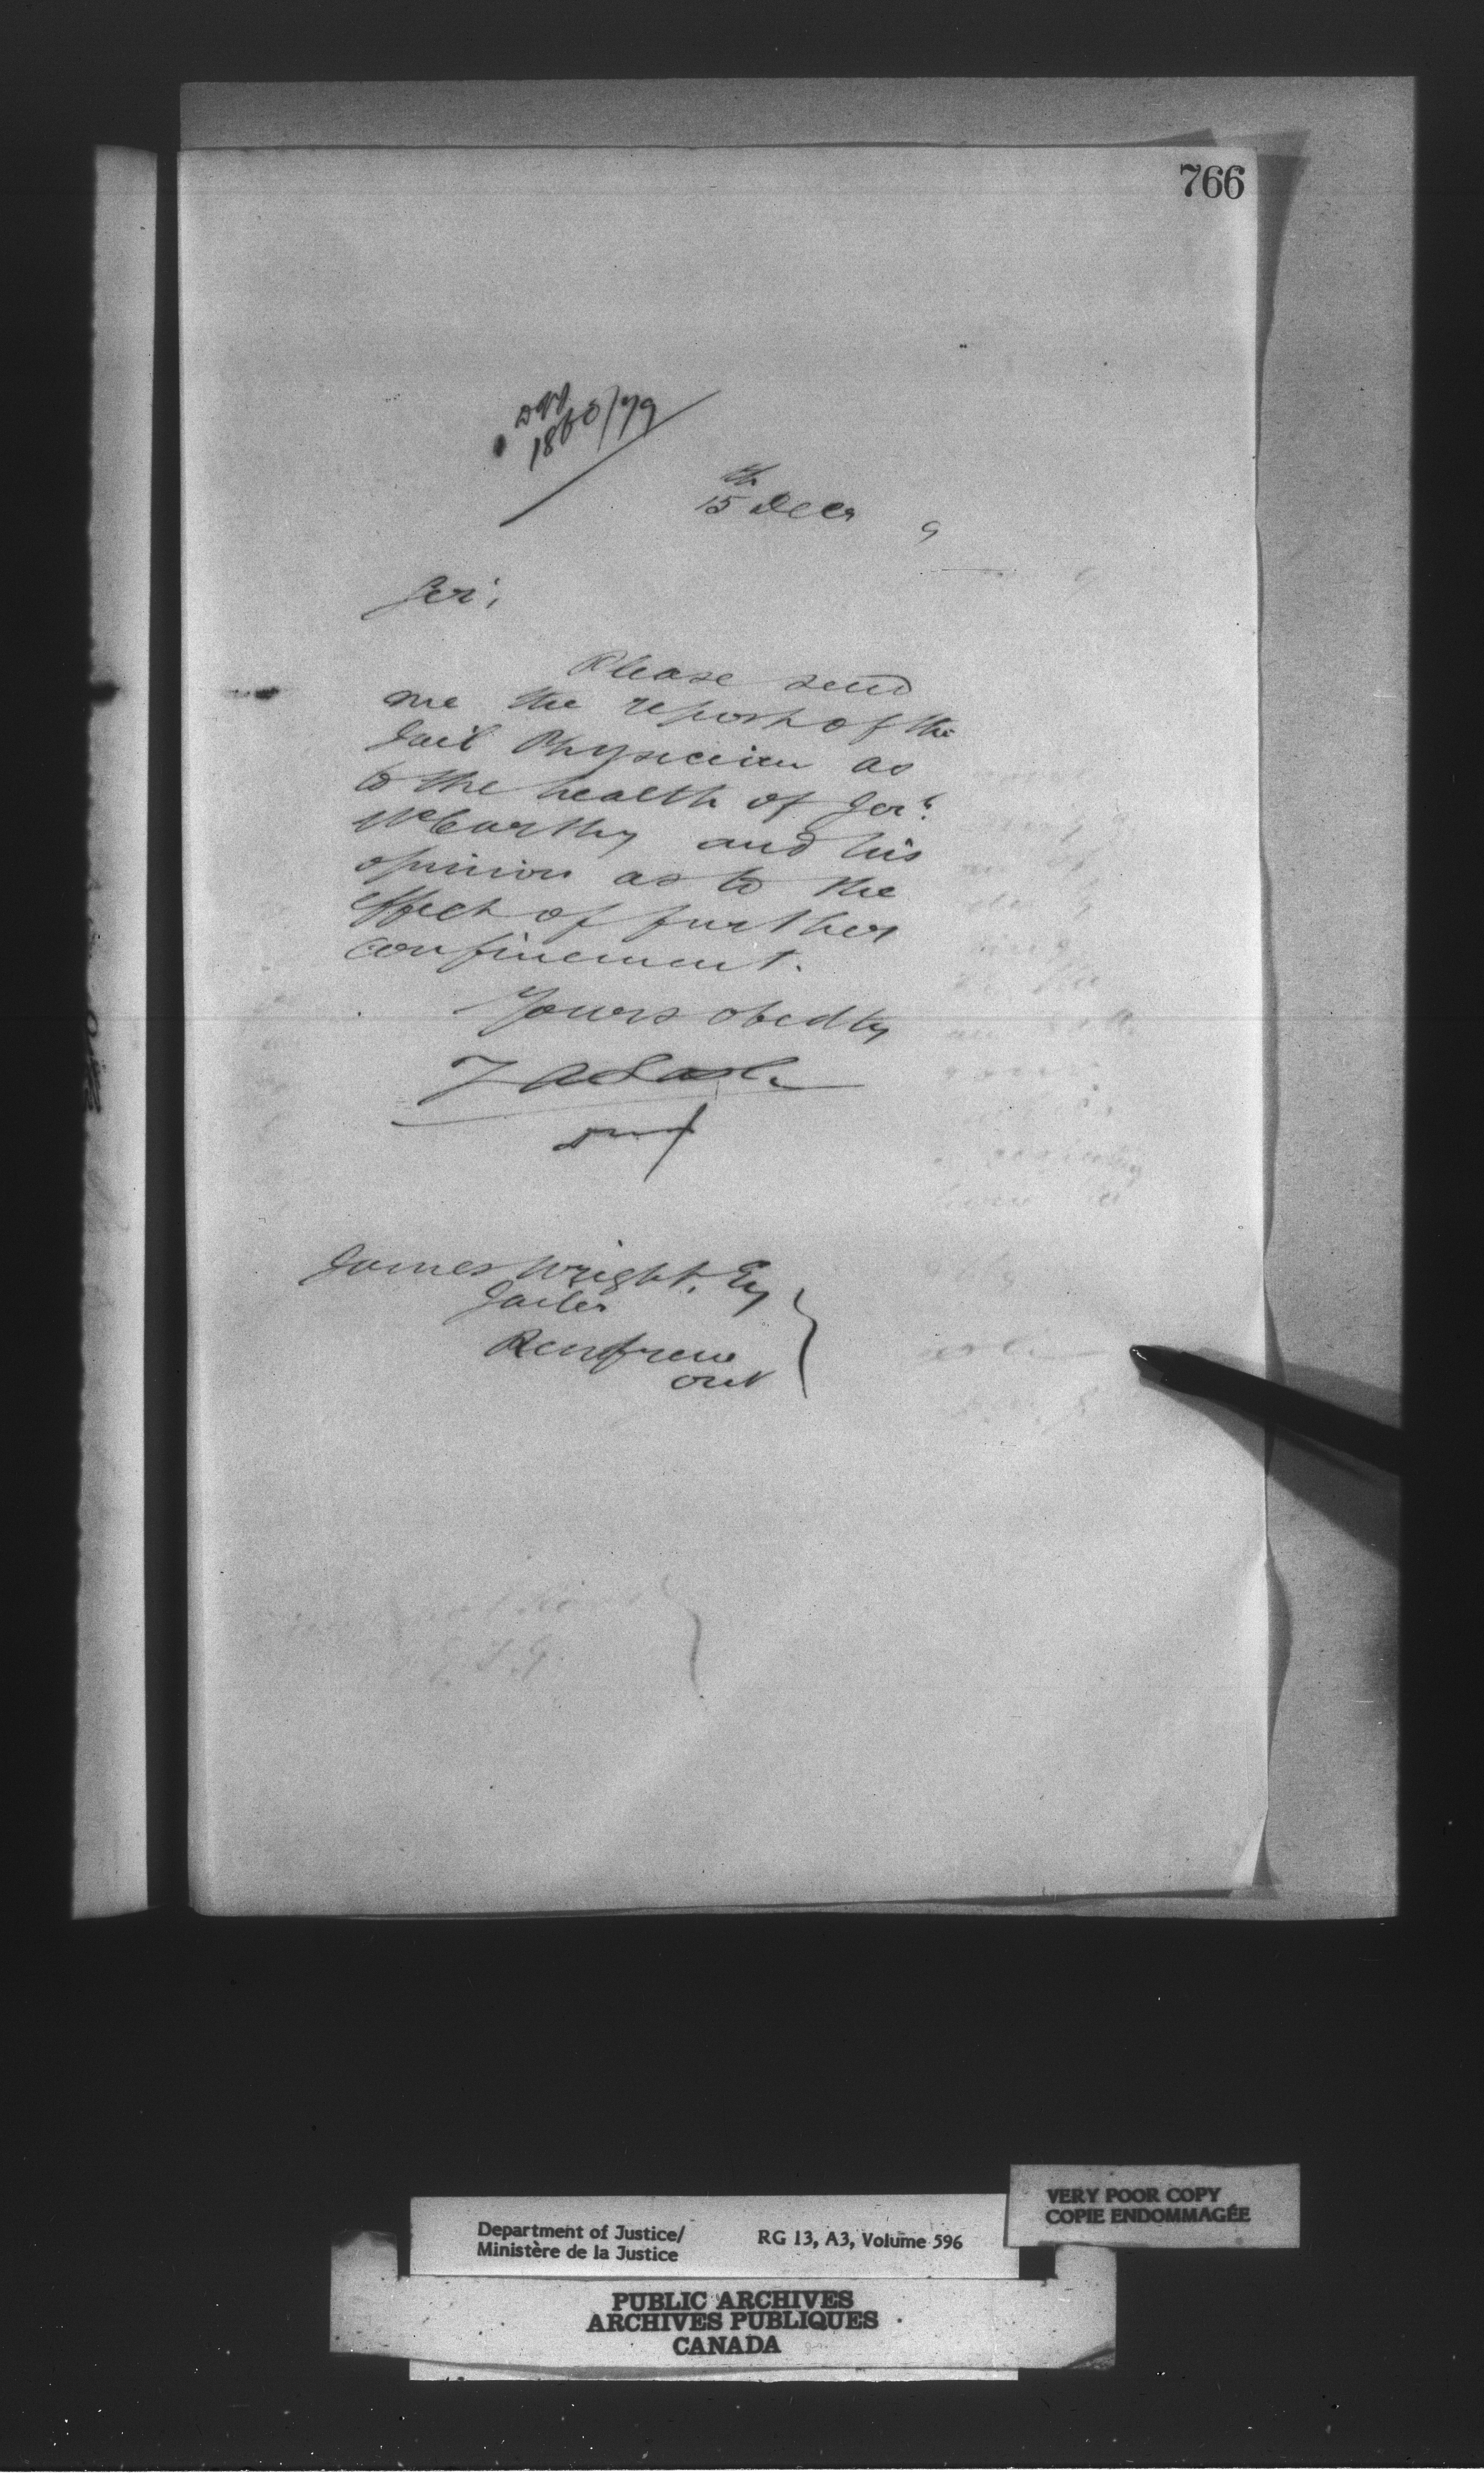 766
1860/79
15th Decr 9
Sir,
Please send
me the report of the
Jail Physician as
to the health of Jerh
McCarthy and his
opinion as to the
effect of further
confinement.
Yours obedtly
Z A Lash
DMJ
James Wright, Esq
Jailer
Renfrew
Ont
VERY POOR COPY
COPIE ENDOMMAGÉE
Department of Justice/
Ministère de la Justice
RG 13, A3, Volume 596
PUBLIC ARCHIVES
ARCHIVES PUBLIQUES
CANADA